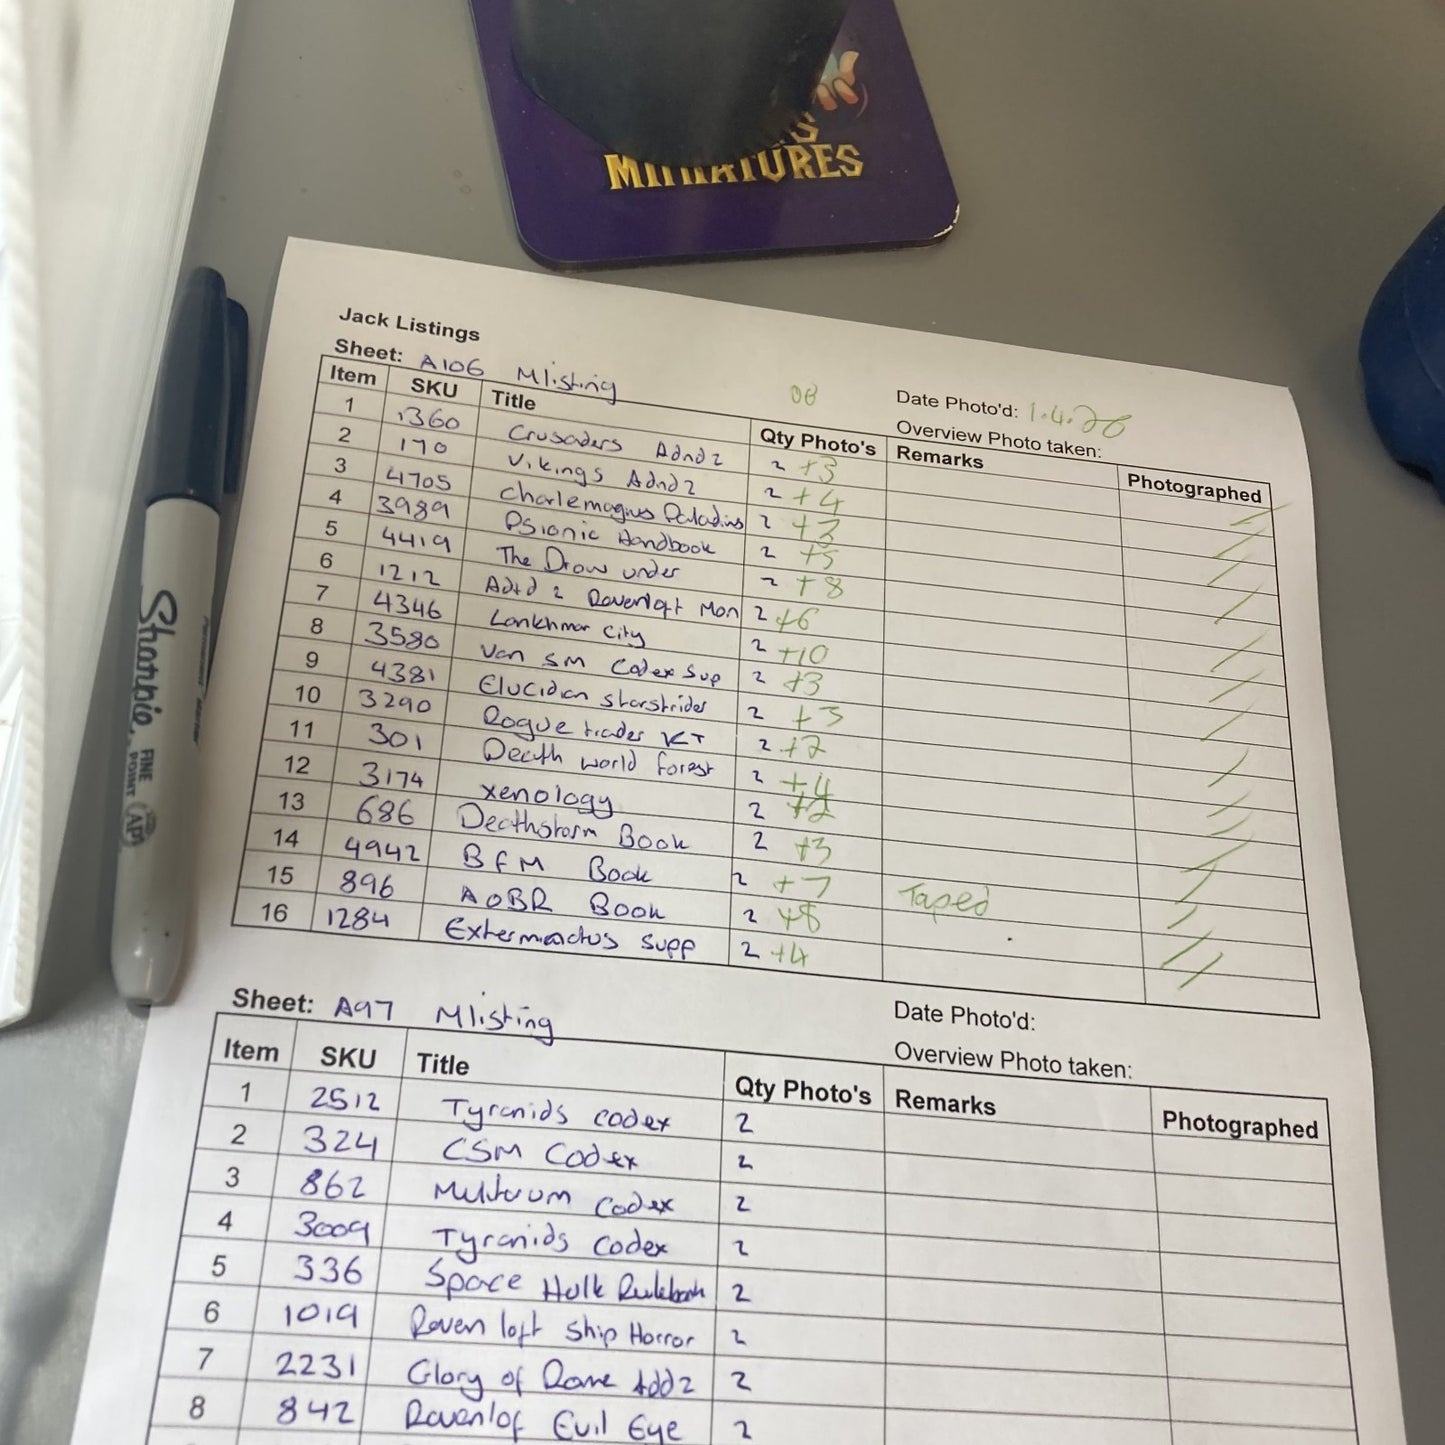 MINIATURES
Jack Listings
Sheet: A106 Mlisting
OB
Date Photo'd: 1.4.26
Overview Photo taken:
Item SKU Title Qty Photo's Remarks Photographed
1 1360 Crusaders Adnd2 2 +3
2 170 Vikings Adnd2 2 +4
3 4705 Charlemagnes Paladins 2 +3
4 3989 Psionic Handbook 2 +5
5 4419 The Drow under 2 +8
6 1212 Adnd 2 Ravenloft Mon 2 +6
7 4346 Lankhmar City 2 +10
8 3580 Van SM Codex Sup 2 +3
9 4381 Elucidian starstrider 2 +3
10 3290 Rogue trader KT 2 +2
11 301 Death world forest 2 +4
12 3174 xenology 2 +2
13 686 Deathstorm Book 2 +3
14 4942 BFM Book 2 +7 Taped
15 896 AOBR Book 2 +8
16 1284 Exterminatus supp 2 +4
Sheet: A97 Mlisting
Date Photo'd:
Overview Photo taken:
Item SKU Title Qty Photo's Remarks Photographed
1 2512 Tyranids codex 2
2 324 CSM Codex 2
3 862 Codex 2
4 3009 Tyranids Codex 2
5 336 Space Hulk Rulebook 2
6 1019 Ravenloft Ship Horror 2
7 2231 Glory of Rome Add2 2
8 842 Ravenlof Evil Eye 2
Sharpie
FINE
POINT
AP